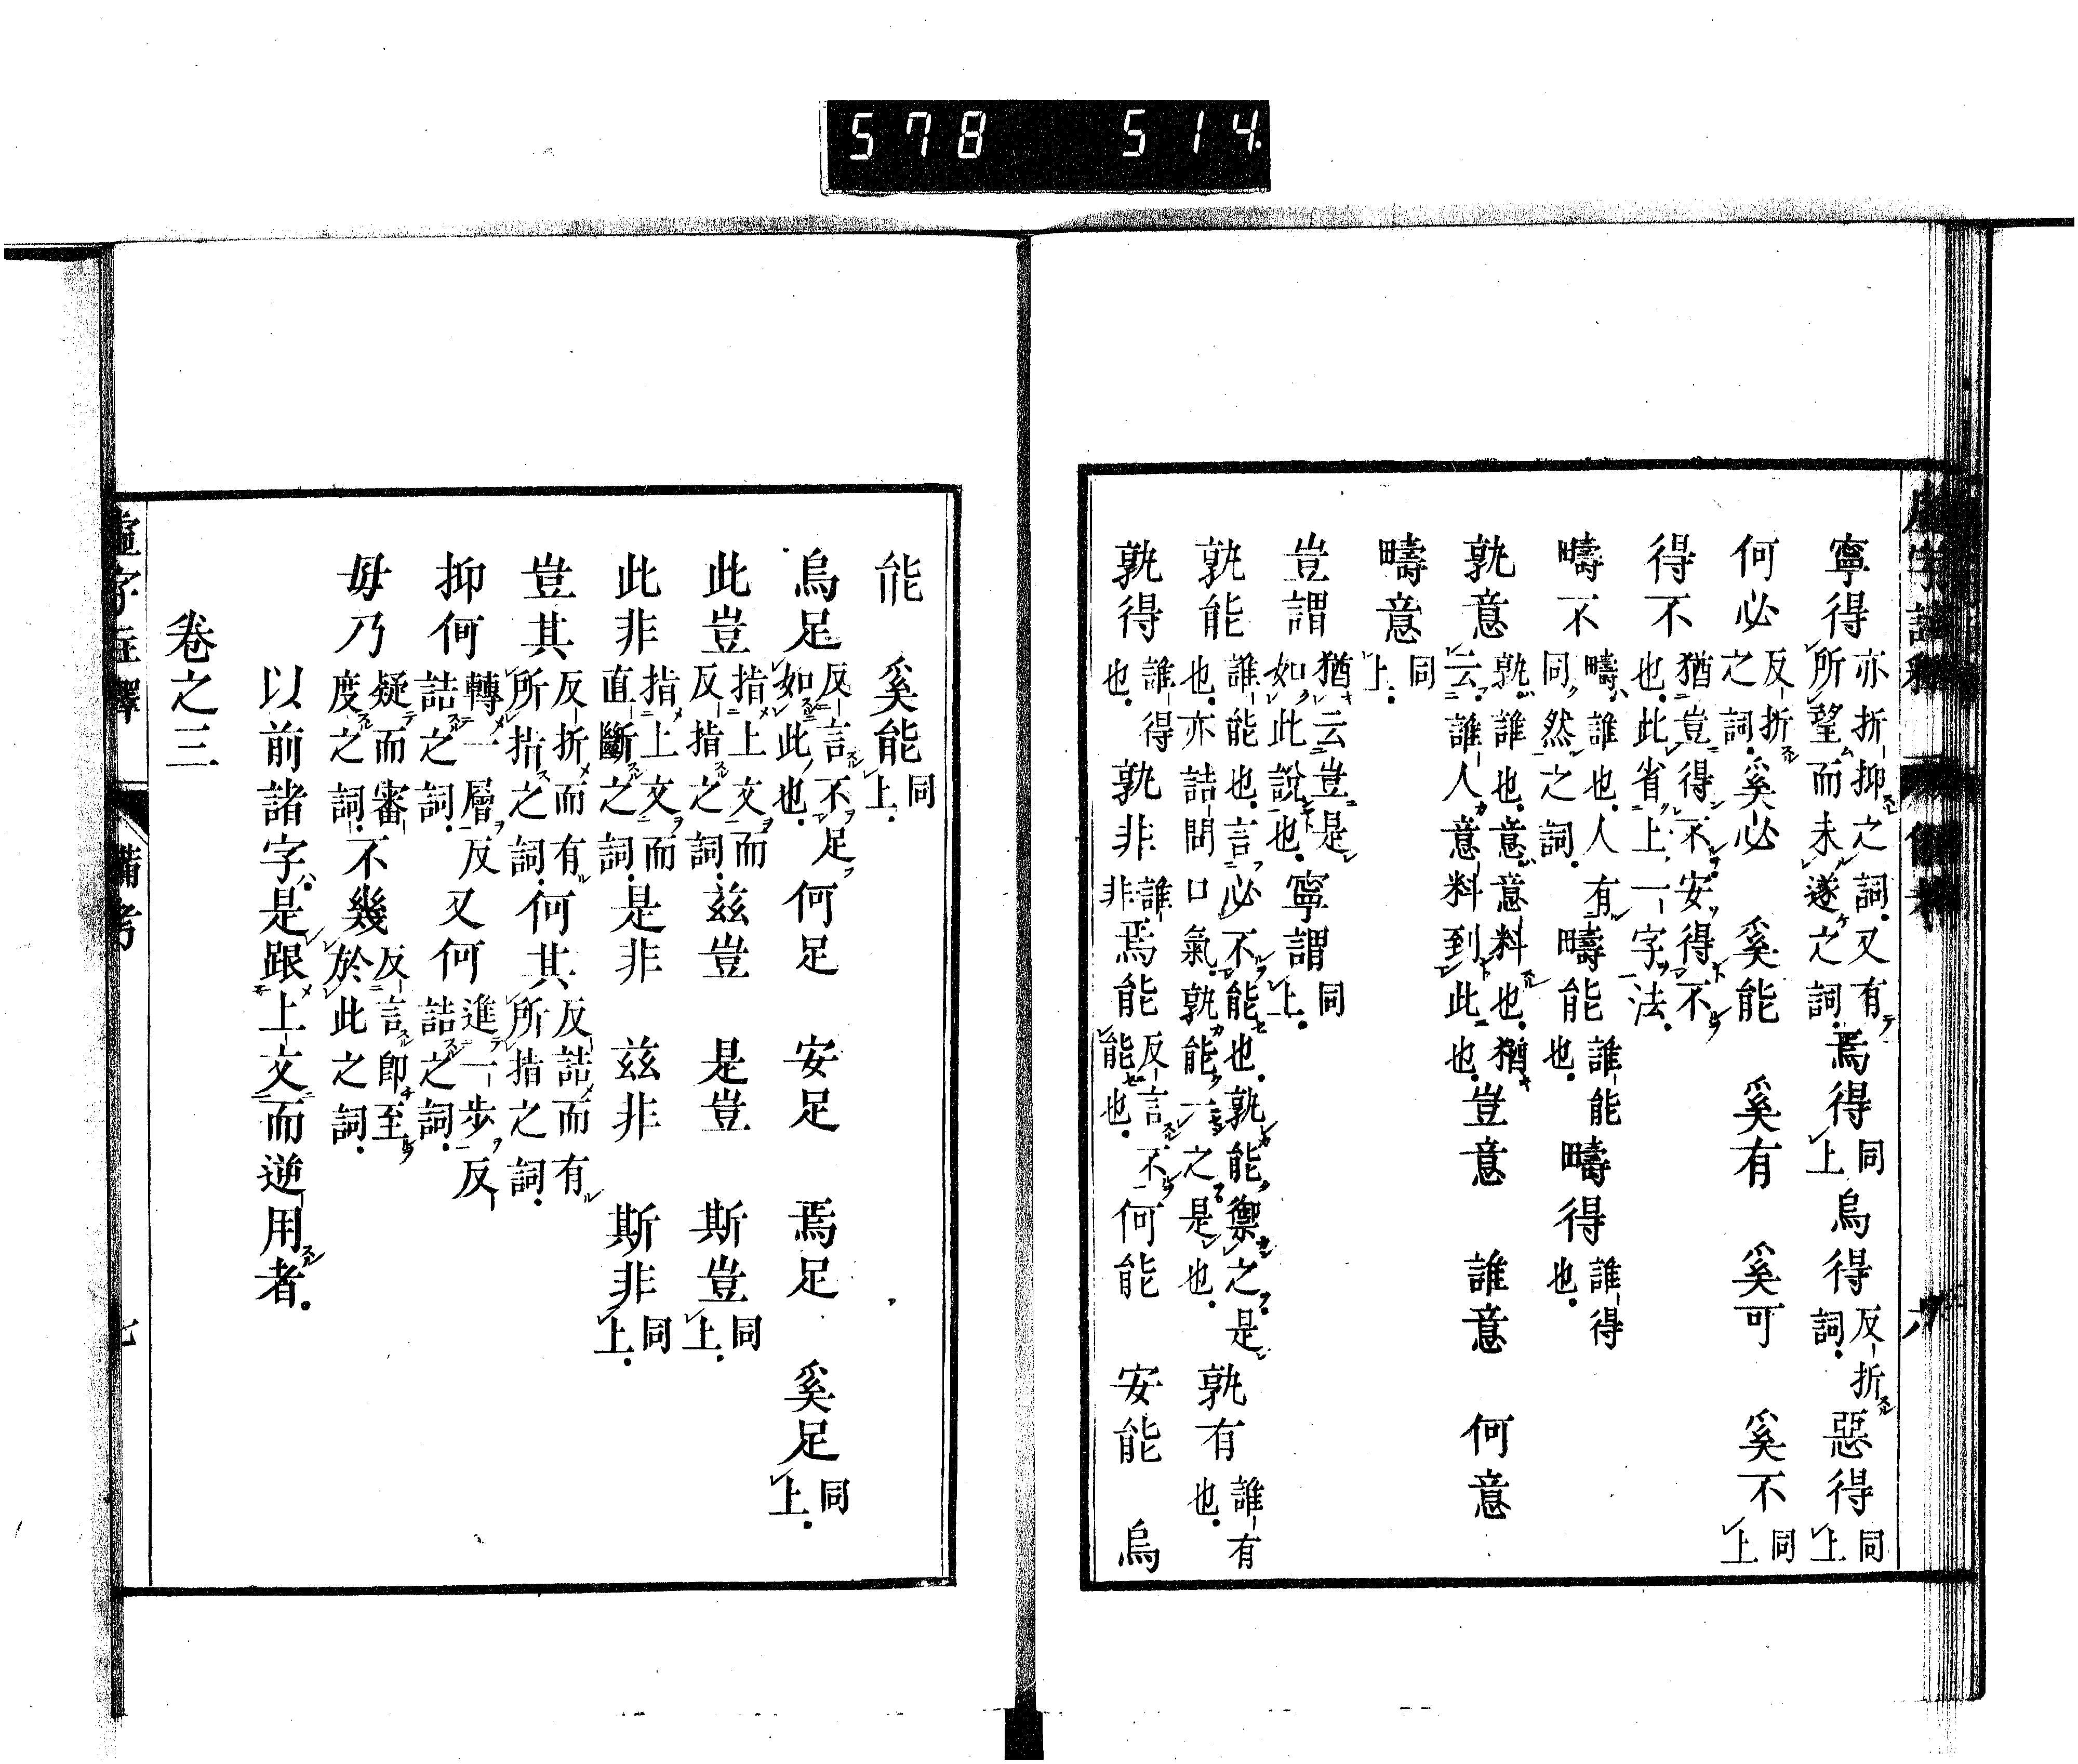 578 514.
寧得 亦折抑之詞.又有所望而未遂之詞. 焉得 同上 烏得 反折詞. 惡得 同上
何必 反折之詞. 奚必 奚能 奚有 奚可 奚不 同上
得不 猶豈得不安得不也.此省上一字法.
疇不 疇誰也.人有同然之詞. 疇能 誰能也. 疇得 誰得也.
孰意 孰誰也.意意料也.猶云誰人意料到此也. 豈意 誰意 何意
疇意 同上.
豈謂 猶云豈是如此說也. 寧謂 同上.
孰能 誰能也.言必不能也.孰能禦之是也.亦詰問口氣.孰能一之是也. 孰有 誰有也.
孰得 誰得也. 孰非 誰非 焉能 反言不能也. 何能 安能 烏
虛字註釋 備考 六
能 奚能 同上.
烏足 反言不足如此也. 何足 安足 焉足 奚足 同上.
此豈 指上文而反指之詞. 茲豈 是豈 斯豈 同上.
此非 指上文而直斷之詞. 是非 茲非 斯非 同上.
豈其 反折而有所指之詞. 何其 反詰而有所指之詞.
抑何 轉一層反詰之詞. 又何 進一步反詰之詞.
毋乃 疑而審度之詞. 不幾於 反言即至此之詞.
以前諸字.是跟上文而逆用者.
卷之三
虛字註釋 備考 七